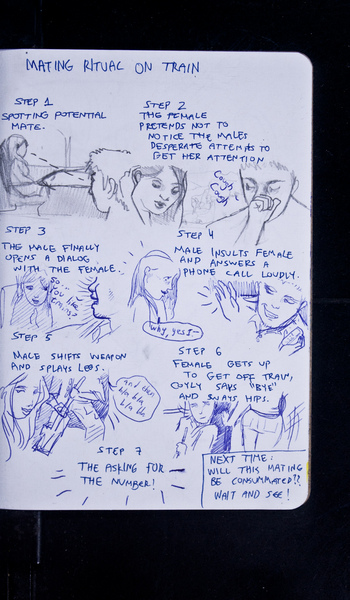 MATING RITUAL ON TRAIN
STEP 1
SPOTTING POTENTIAL
MATE.
STEP 2
THE FEMALE
PRETENDS NOT TO
NOTICE THE MALES
DESPERATE ATTEMPTS TO
GET HER ATTENTION
Cough
Cough
STEP 3
THE MALE FINALLY
OPENS A DIALOG
WITH THE FEMALE.
SO,
YOU IN
STEP 4
MALE INSULTS FEMALE
AND ANSWERS A
PHONE CALL LOUDLY.
Why, yes I-
STEP 5
MALE SHIFTS WEAPON
AND SPLAYS LEGS.
and then
bla bla
bla bla
STEP 6
FEMALE GETS UP
TO GET OFF TRAIN,
COYLY SAYS "BYE"
AND SWAYS HIPS.
STEP 7
THE ASKING FOR
THE NUMBER!
NEXT TIME:
WILL THIS MATING
BE CONSUMMATED?!
WAIT AND SEE!